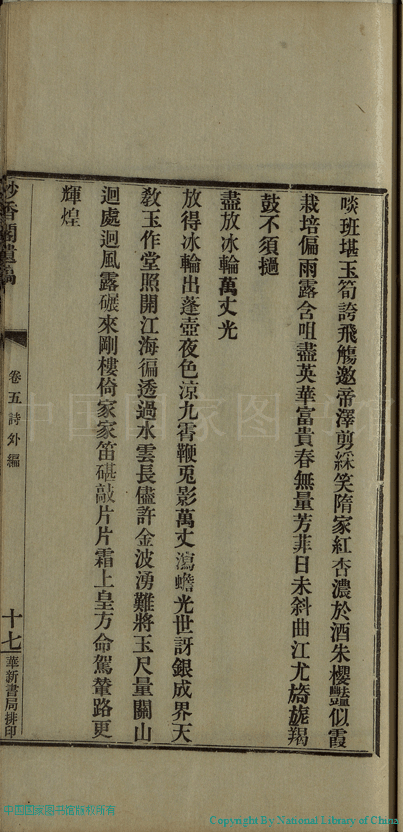 啖班堪玉筍誇飛觴邀帝澤剪綵笑隋家紅杏濃於酒朱櫻豔似霞
栽培偏雨露含咀盡英華富貴春無量芳菲日未斜曲江尤旖旎羯
鼓不須撾
盡放冰輪萬丈光
放得冰輪出蓬壺夜色涼九霄鞭兎影萬丈瀉蟾光世訝銀成界天
敎玉作堂照開江海徧透過水雲長儘許金波湧難將玉尺量關山
迴處迴風露碾來剛樓倚家家笛碪敲片片霜上皇方命駕輦路更
輝煌
香閣遺稿
卷五詩外編
十七
華新書局排印
中国国家图书馆
中国国家图书馆版权所有
Copyright By National Library of China